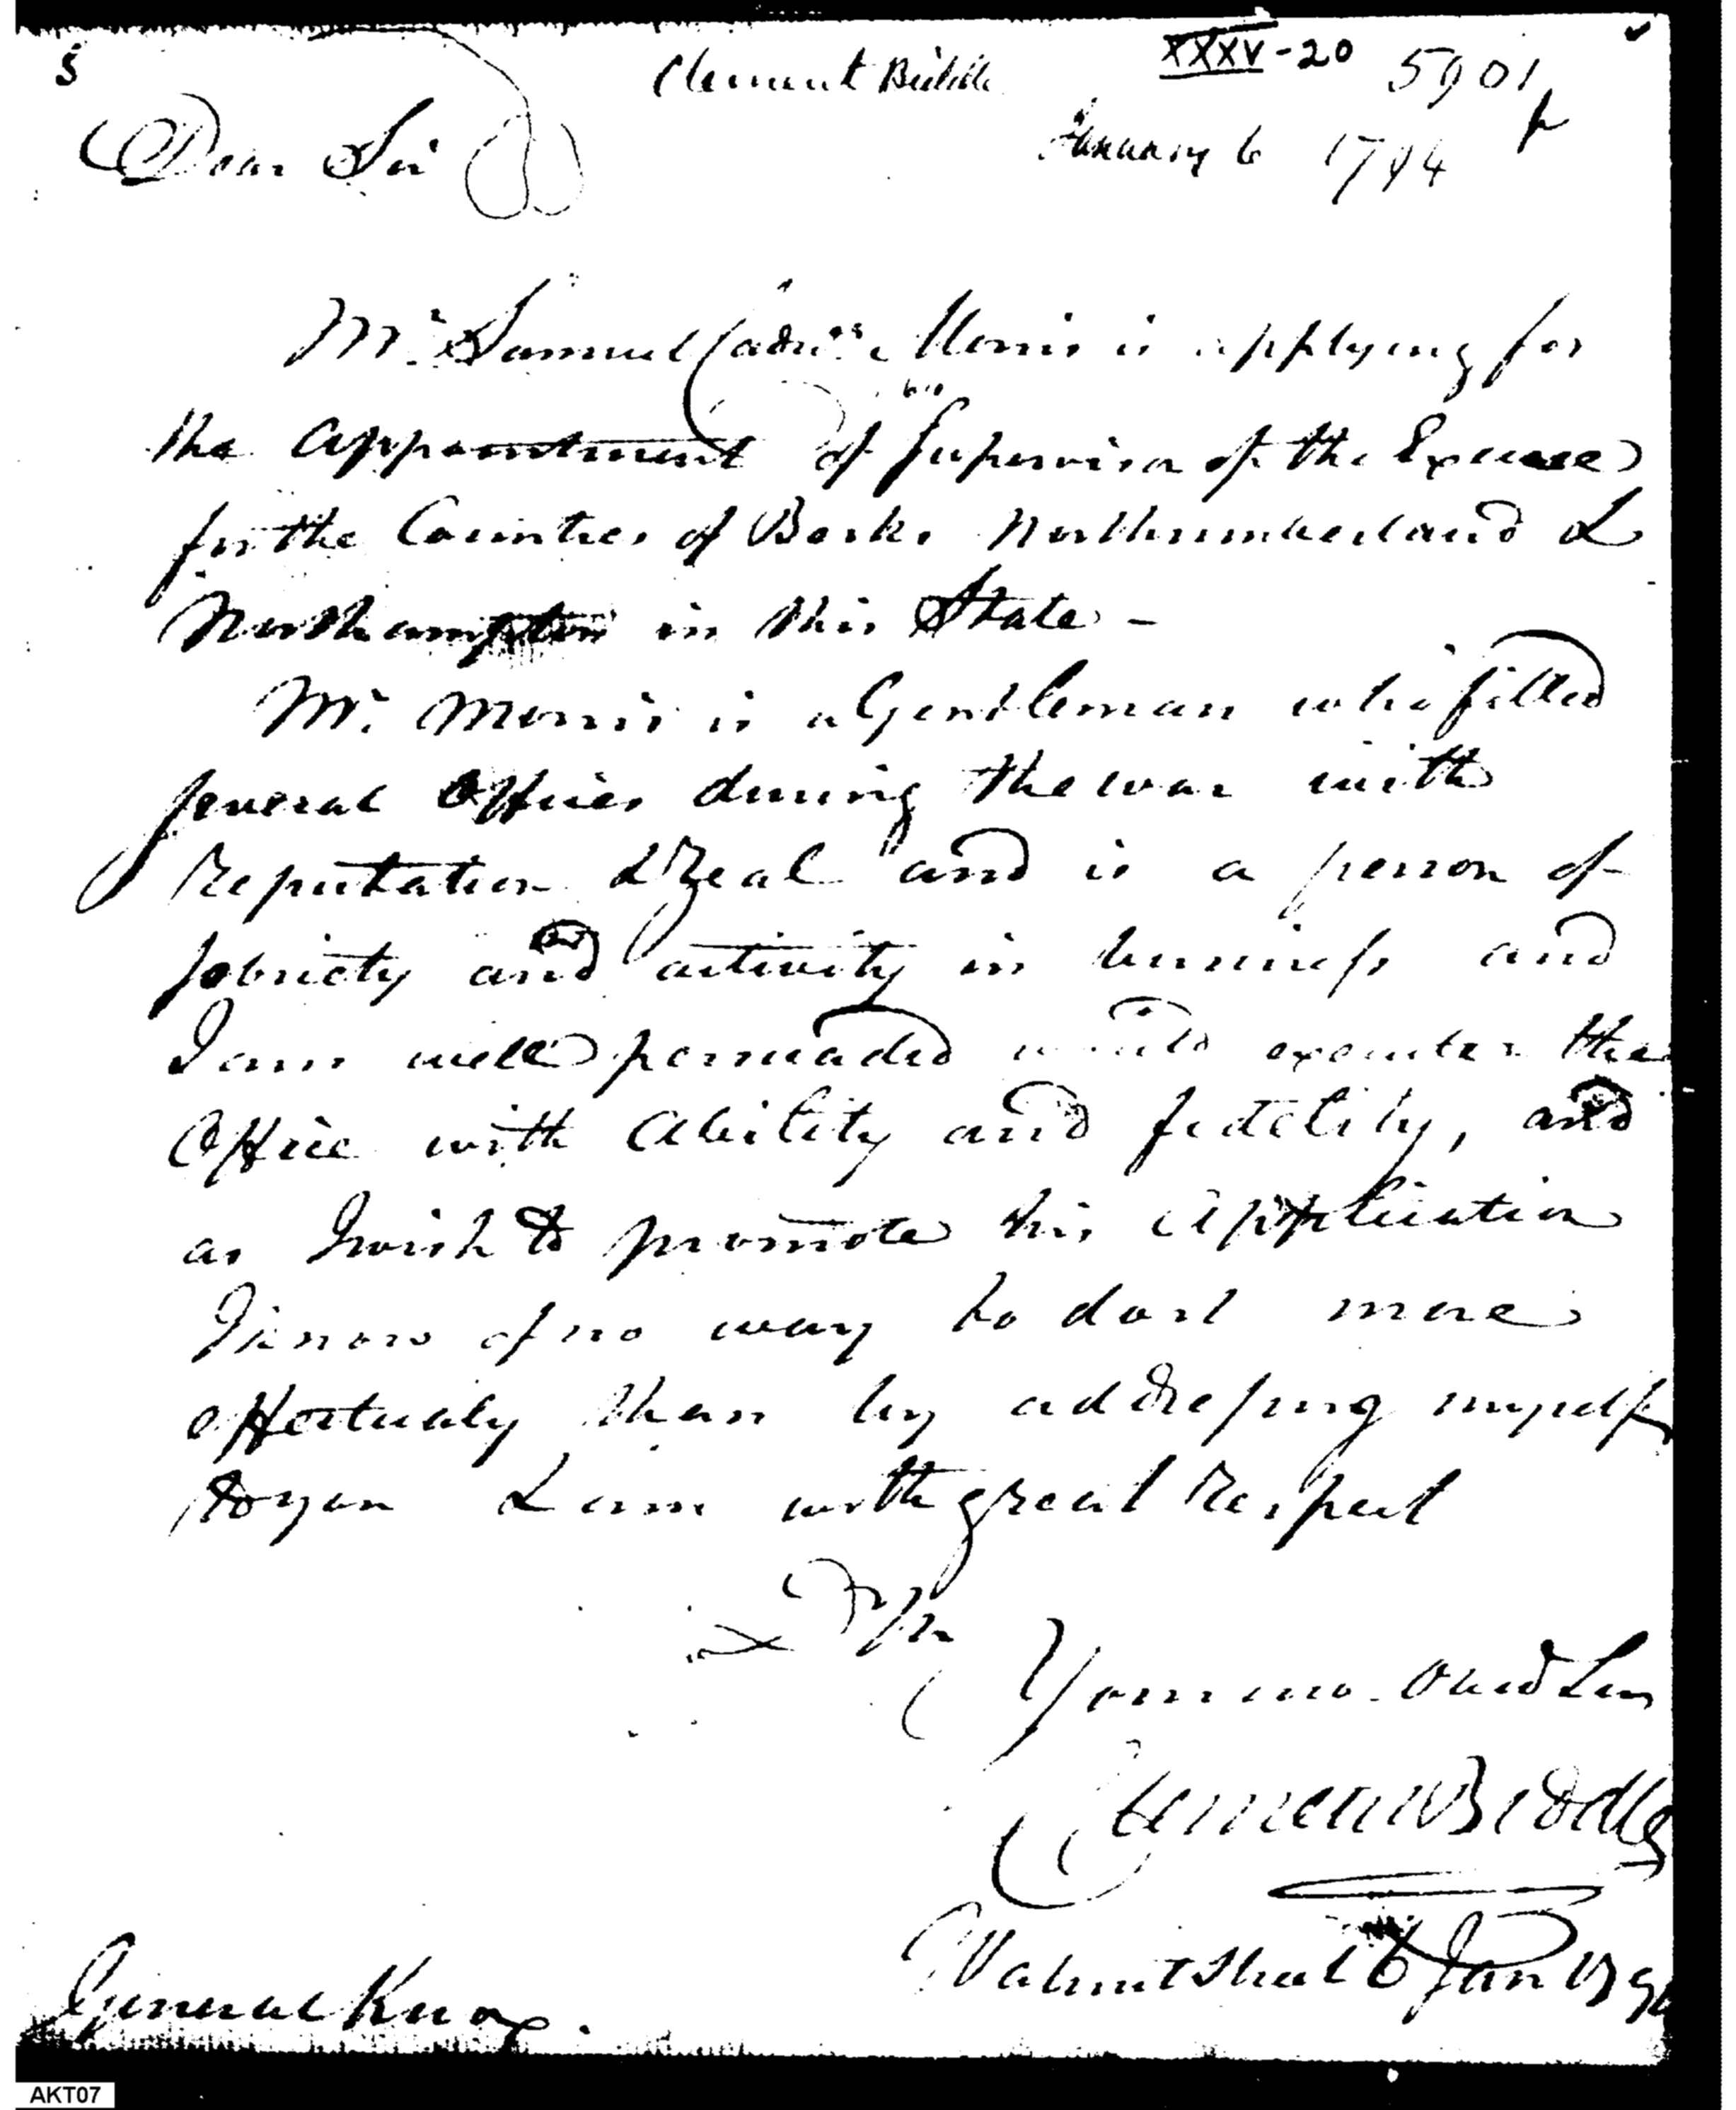 XXXV-20
5901
Clement Biddle
January 6 1794
Dear Sir
Mr. Samuel Cadwr. Morris is applying for
the Appointment of Supervisor of the Excise
for the Counties of Berks Northumberland &
Northampton in this State -
Mr. Morris is a Gentleman who filled
several Offices during the war with
Reputation & Zeal and is a person of
sobriety and activity in business and
I am well persuaded would execute the
Office with Ability and fidelity, and
as I wish to promote his Application
I know of no way to do it more
effectualy than by addressing myself
to you & am with great Respect
Your mo. Obed Ser
Clement Biddle
Walnut Street 6 Jan 179
General Knox.
AKT07